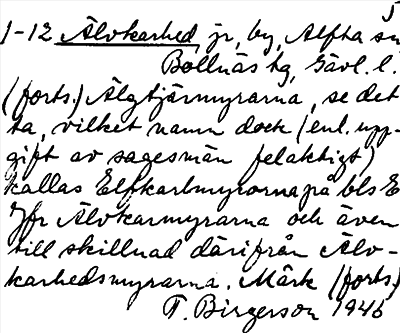 5
1-12 Älvkarhed, jr, by, Alfta sn
Bollnäs tg, Gävl. l.
(forts.) Älgtjärmyrarna, se det-
ta, vilket namn dock (enl. upp-
gift av sagesmän felaktigt)
kallas Elfkarlmyrorna på bls E
Jfr Älvkarmyrarna och även
till skillnad därifrån Älv-
karhedsmyrarna. Märk (forts.)
T. Birgerson 1946